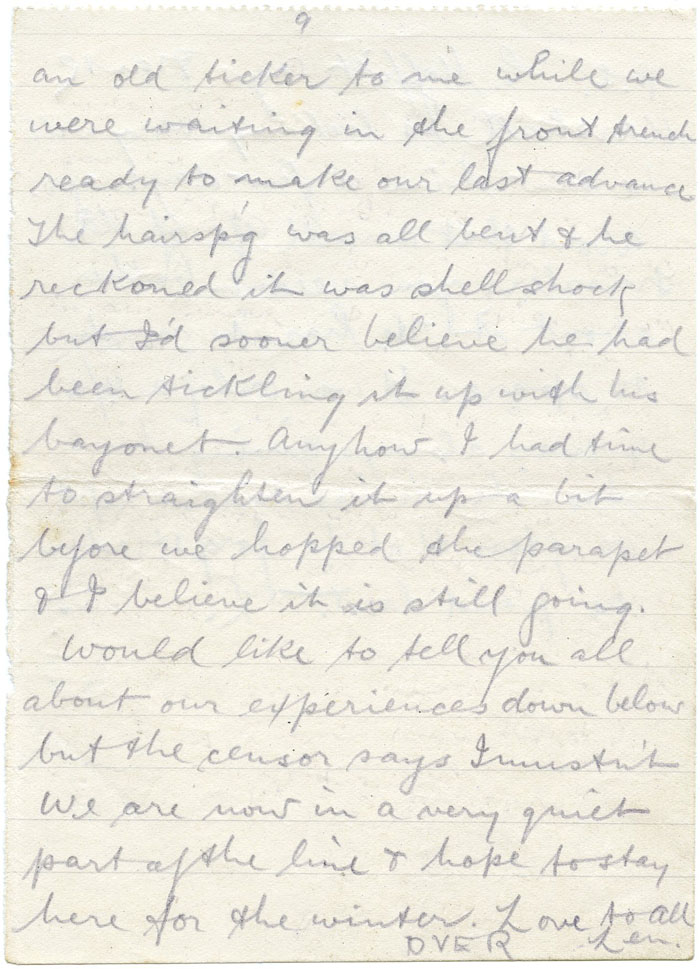 9
an old ticker to me while we
were waiting in the front trench
ready to make our last advance
The hairsp'g was all bent & he
reckoned it was shell shock
but I'd sooner believe he had
been tickling it up with his
bayonet. Anyhow I had time
to straighten it up a bit
before we hopped the parapet
& I believe it is still going.
Would like to tell you all
about our experiences down below
but the censor says I mustn't
We are now in a very quiet
part of the line & hope to stay
here for the winter. Love to all
OVER Len.